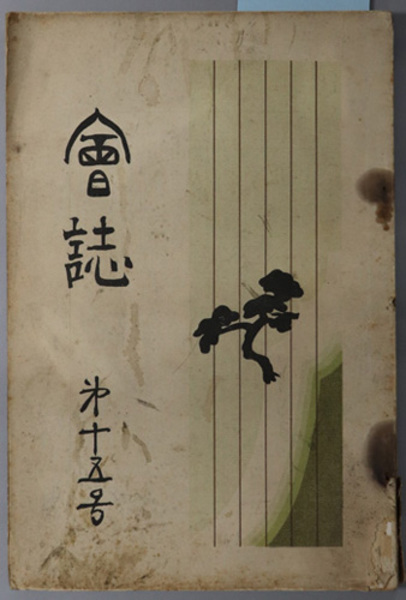 會誌
第十五号